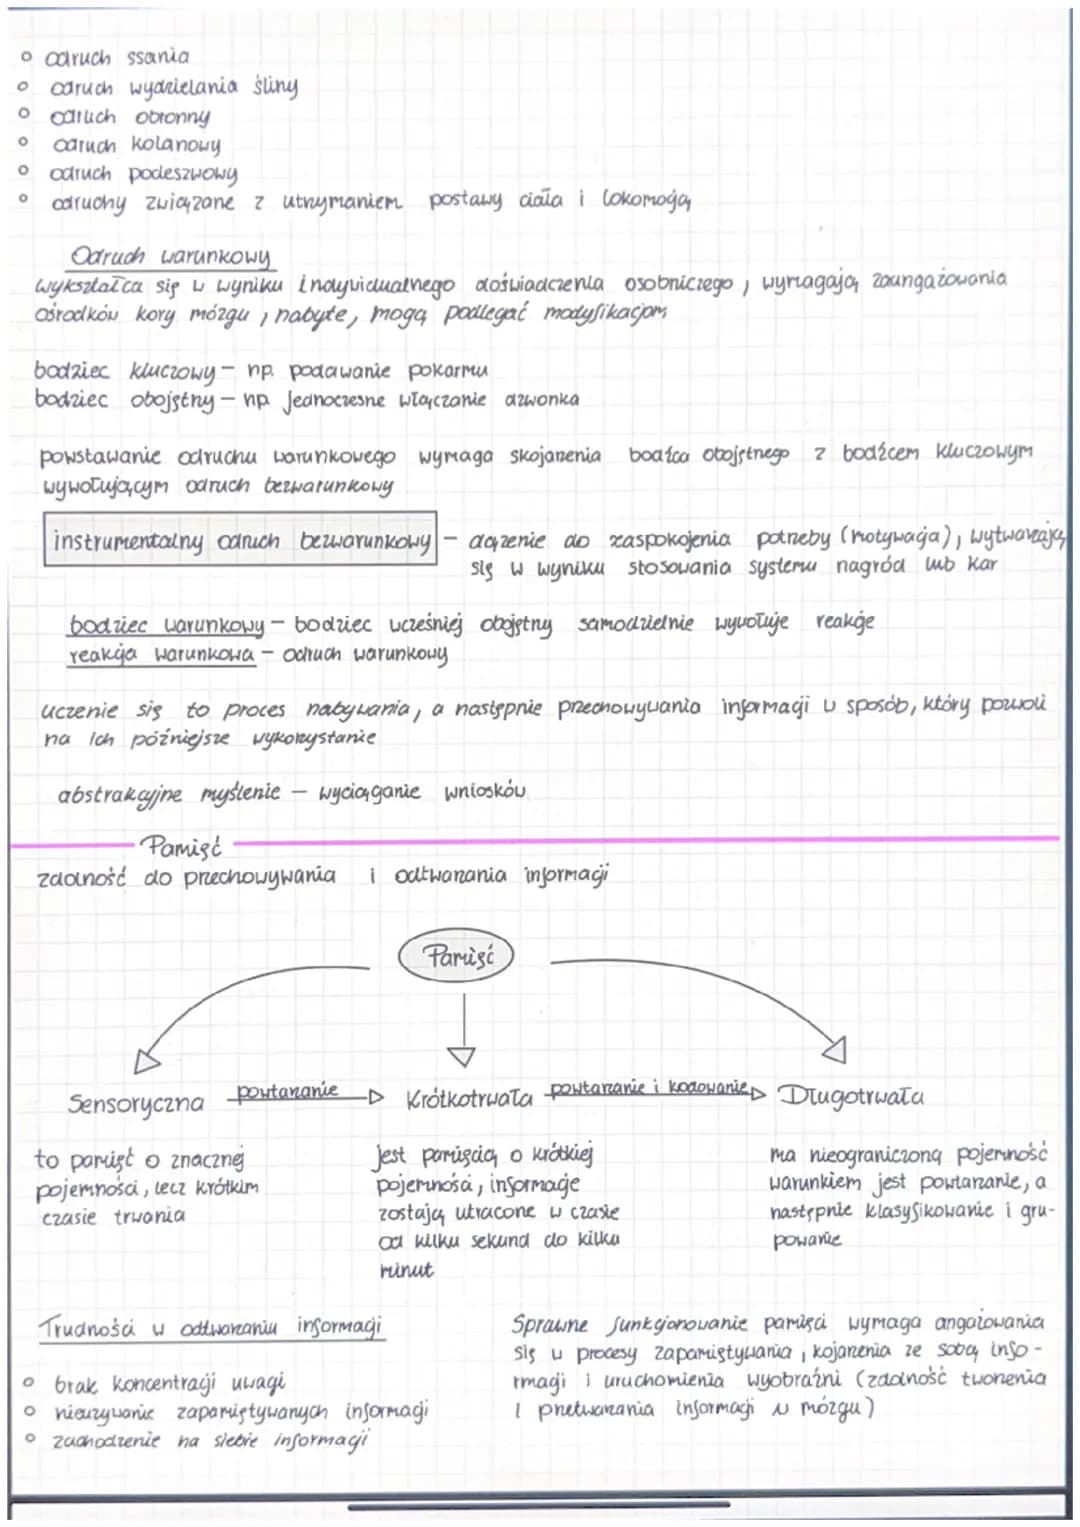 odruch ssania
odruch wydzielania śliny
odruch obronny
odruch kolanowy
odruch podeszwowy
odruchy związane z utrzymaniem postawy ciała i lokomocją
Odruch warunkowy
wykształca się w wyniku indywidualnego doświadczenia osobniczego, wymagają zaangażowania
ośrodków kory mózgu, nabyte, mogą podlegać modyfikacjom
bodziec kluczowy - np. podawanie pokarmu
bodziec obojętny - np. jednoczesne włączanie dzwonka
powstawanie odruchu warunkowego wymaga skojarzenia bodźca obojętnego z bodźcem kluczowym
wywołującym odruch bezwarunkowy
instrumentalny odruch bezwarunkowy - dążenie do zaspokojenia potrzeby (motywacja), wytwarzają
się w wyniku stosowania systemu nagród lub kar
bodziec warunkowy - bodziec wcześniej obojętny samodzielnie wywołuje reakcje
reakcja warunkowa - odruch warunkowy
uczenie się to proces nabywania, a następnie przechowywania informacji w sposób, który pozwoli
na ich późniejsze wykorzystanie
abstrakcyjne myślenie - wyciąganie wniosków
Pamięć
zdolność do przechowywania i odtwarzania informacji
Pamięć
Sensoryczna powtarzanie Krótkotrwała powtarzanie i kodowanie Długotrwała
to pamięć o znacznej
pojemności, lecz krótkim
czasie trwania
jest pamięcią o krótkiej
pojemności, informacje
zostają utracone w czasie
od kilku sekund do kilku
minut
ma nieograniczoną pojemność
warunkiem jest powtarzanie, a
następnie klasyfikowanie i gru-
powanie
Trudności w odtwarzaniu informacji
brak koncentracji uwagi
nieużywanie zapamiętywanych informacji
zachodzenie na siebie informacji
Sprawne funkcjonowanie pamięci wymaga angażowania
się w procesy zapamiętywania, kojarzenia ze sobą info-
rmacji i uruchomienia wyobraźni (zdolność tworzenia
i przetwarzania informacji w mózgu)